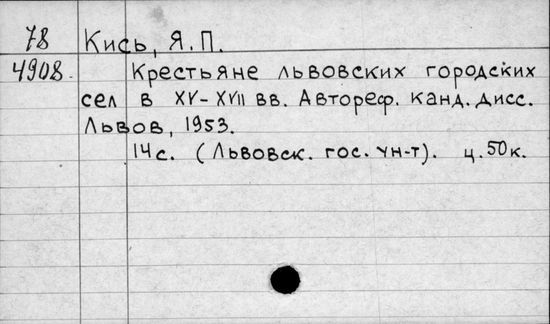 78 Кись, Я.П.
4908. Крестьяне львовских городских
сел в XV-XVII вв. Автореф. канд. дисс.
Львов, 1953.
14с. (Львовск. гос. ун-т). ц. 50к.